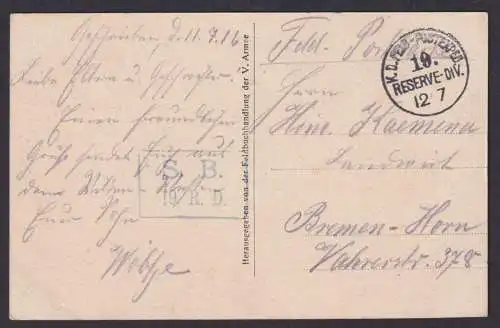 Geschrieben d. 11.7.16
Liebe Eltern u. Geschwister.
Einen freundlichen
Gruß sendet Euch aus
dem Westen
Euer Sohn
Wobbe
S. B.
R. D.
Herausgegeben von der Feldbuchhandlung der V. Armee
Feld-Po
K.D. FELD-POSTEXPED.
10.
RESERVE-DIV.
12 7
Herrn
Hinr. Kaemena
Landwirt
Bremen-Horn
Vahrerstr. 378